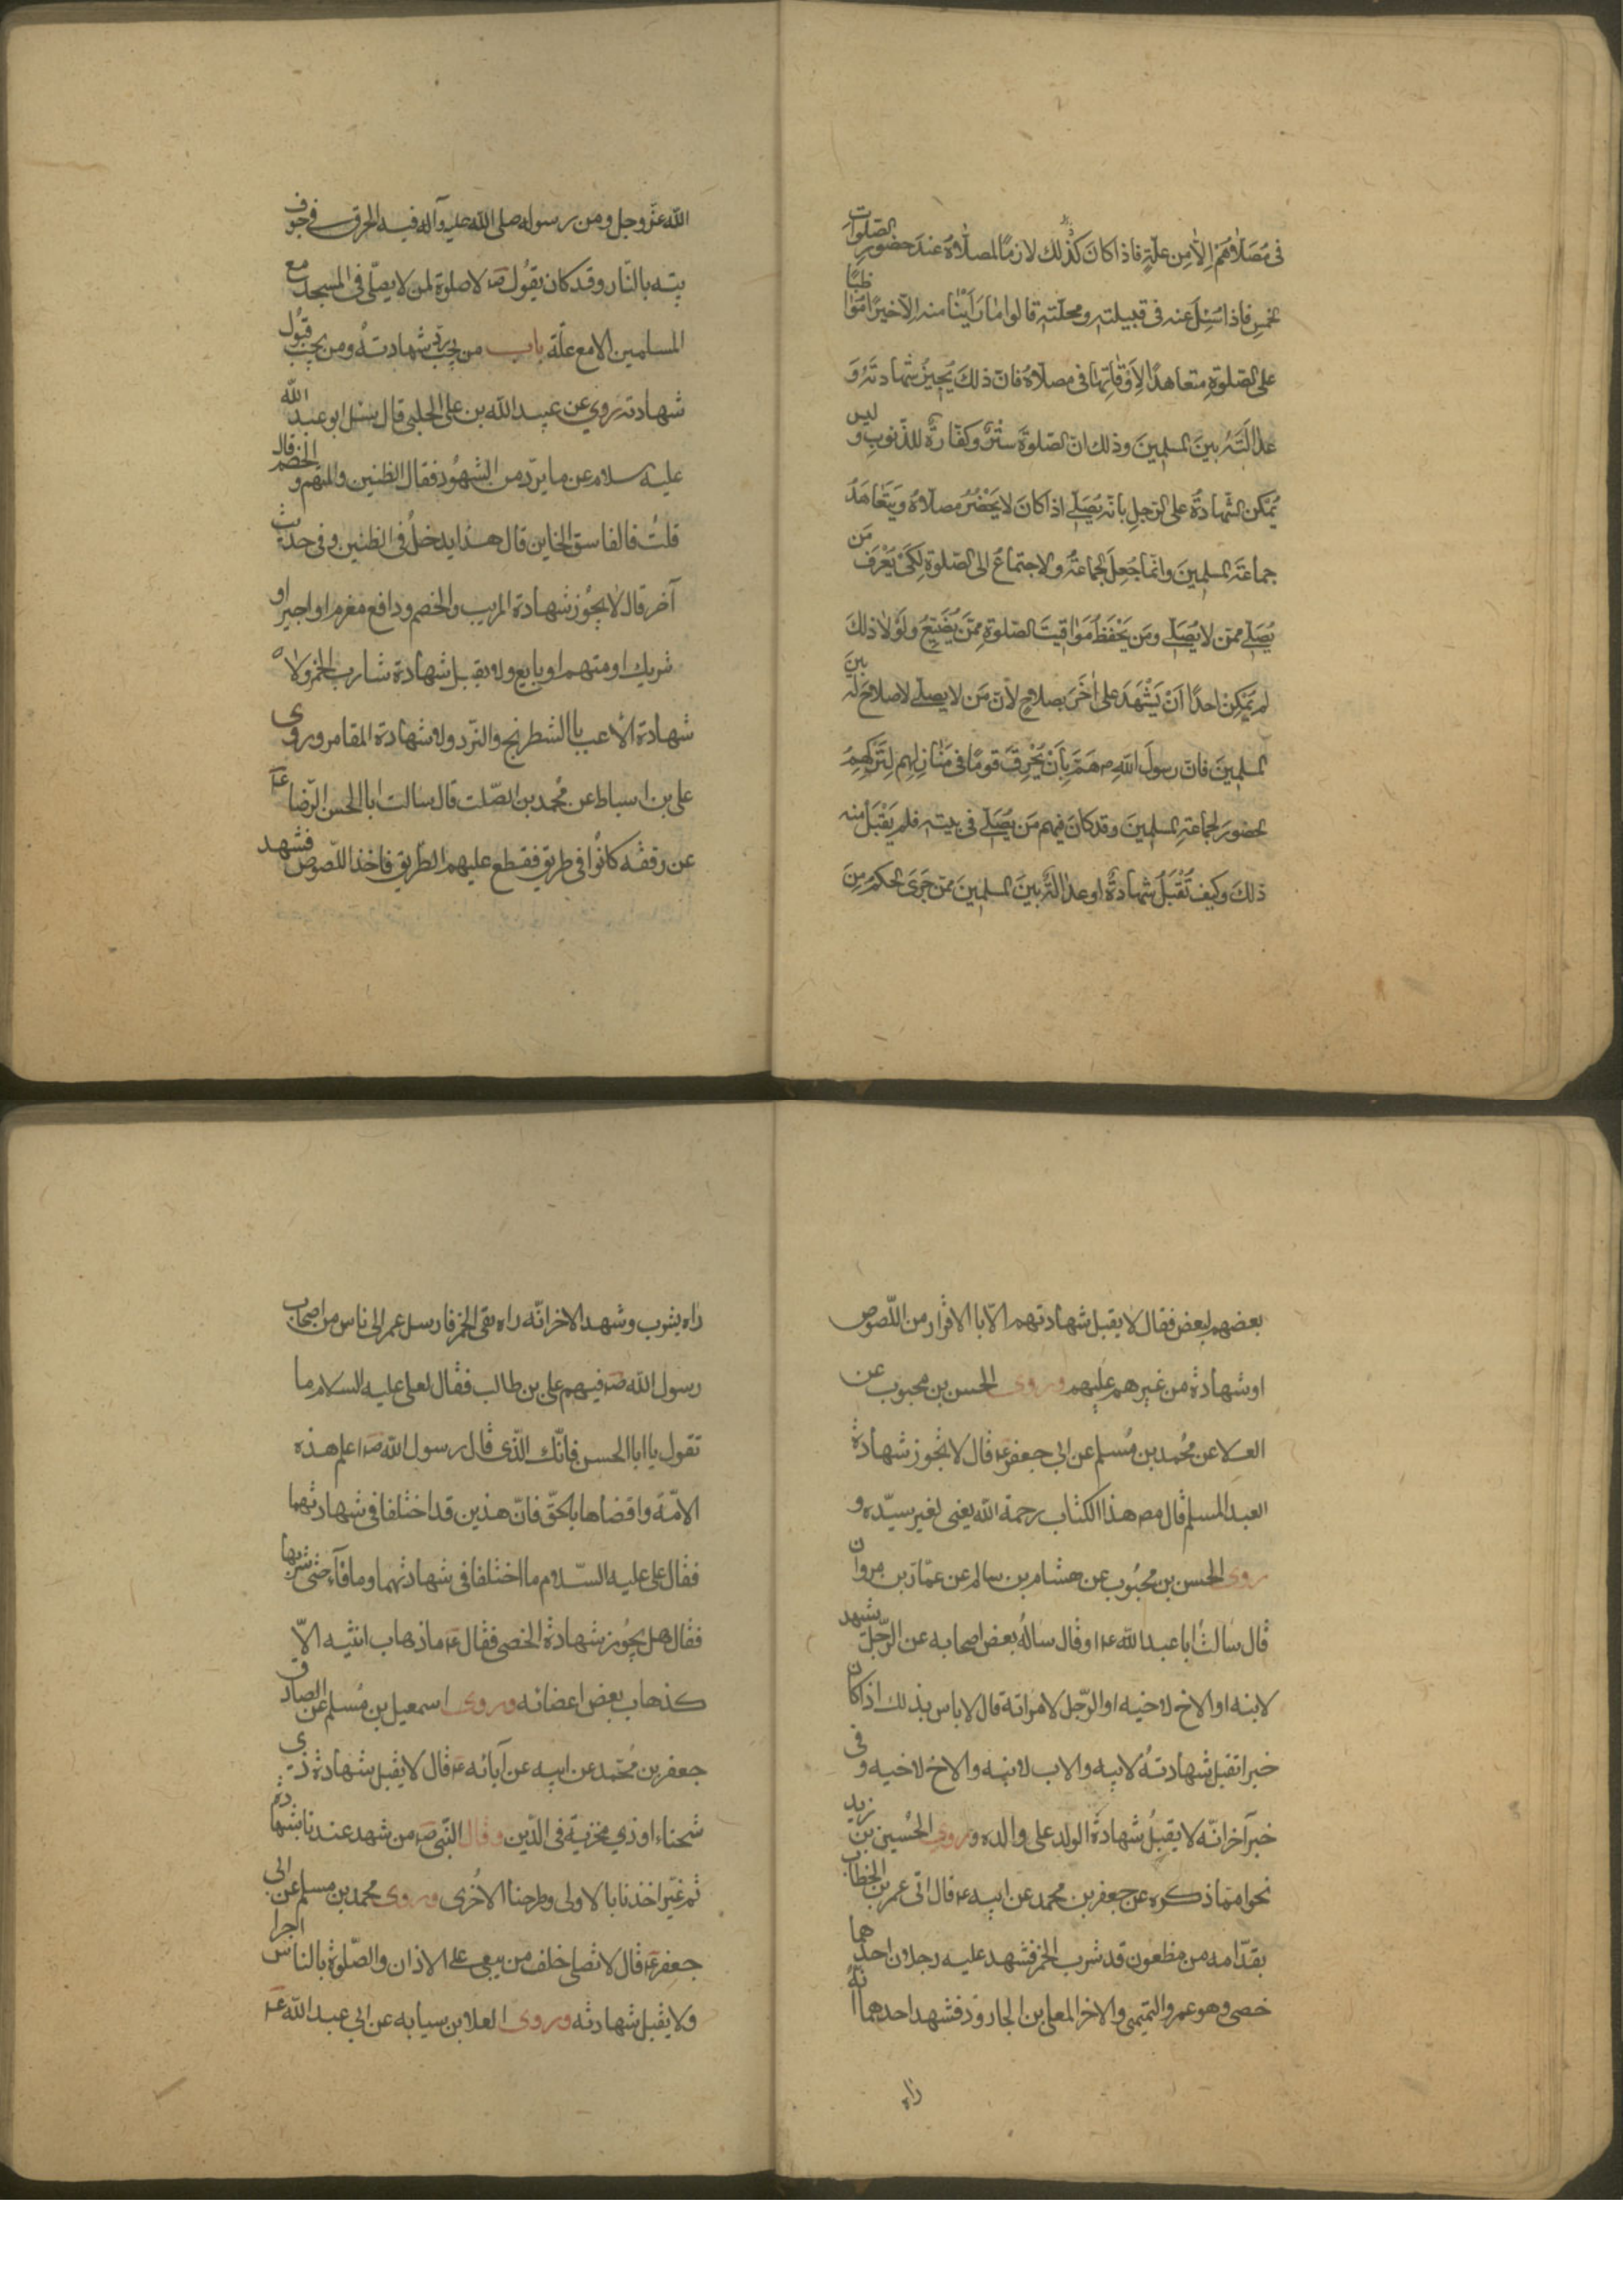 في مصلاهم الا من علة فاذا كان كذلك لازما لمصلاه عند حضور الصلوات
الخمس فاذا سئل عنه في قبيلته ومحلته قالوا ما راينا منه الا خيرا مواظبا
على الصلوة متعاهدا لاوقاتها في مصلاه فان ذلك يجيز شهادته و
عدالته بين المسلمين وذلك ان الصلوة ستر وكفارة للذنوب وليس
يمكن الشهادة على الرجل بانه يصلي اذا كان لا يحضر مصلاه ويتعاهد
جماعة المسلمين وانما جعل الجماعة والاجتماع الى الصلوة لكي يعرف من
يصلي ممن لا يصلي ومن يحفظ مواقيت الصلوة ممن يضيع ولولا ذلك
لم يمكن احدا ان يشهد على اخر بصلاح لان من لا يصلي لا صلاح له بين
المسلمين فان رسول الله ص هم بان يحرق قوما في منازلهم لتركهم
لحضور لجماعة المسلمين وقد كان فيهم من يصلي في بيته فلم يقبل منه
ذلك وكيف تقبل شهادة او عدالة بين المسلمين ممن جرى الحكم من
الله عز وجل ومن رسوله صلى الله عليه وآله فيه الحرق في جوف
بيته بالنار وقد كان يقول ص لا صلوة لمن لا يصلي في المسجد مع
المسلمين الا مع علة باب من يجب رد شهادته ومن يجب قبول
شهادته روي عن عبيد الله بن علي الحلبي قال سئل ابو عبد الله
عليه سلام عن ما يرد من الشهود فقال الظنين والمتهم والخصم قال
قلت فالفاسق الخاين قال هذا يدخل في الظنين وفي حديث
آخر قال لا يجوز شهادة المريب والخصم ودافع مغرم او اجير او
شريك او متهم او بايع ولا يقبل شهادة شارب الخمر ولا
شهادة الاعب با الشطرنج والنرد ولا شهادة المقامر وروى
علي بن اسباط عن محمد بن الصلت قال سالت ابا الحسن الرضا ع
عن رفقه كانوا في طريق فقطع عليهم الطريق فاخذ اللصوص فشهد
بعضهم لبعض فقال لا يقبل شهادتهم الا با الاقرار من اللصوص
او شهادة من غيرهم عليهم وروى الحسن بن محبوب عن
العلا عن محمد بن مسلم عن ابي جعفر ع قال لا تجوز شهادة
العبد المسلم قال مص هذا الكتاب رحمة الله يعني لغير سيده و
روى الحسن بن محبوب عن هشام بن سالم عن عمار بن مروان
قال سالت ابا عبد الله ع او قال ساله بعض اصحابه عن الرجل يشهد
لابنه او الاخ لاخيه او الرجل لامراته قال لا باس بذلك اذا كان
خيرا تقبل شهادته لابيه والاب لابنه والاخ لاخيه وفي
خبر آخر انه لا يقبل شهادة الولد على والده وروى الحسين بن زيد
نحوا مما ذكره عن جعفر بن محمد عن ابيه ع قال اتى عمر بن الخطاب
بقدامه من مظعون قد شرب الخمر فشهد عليه رجلان احدهما
خصي وهو عمرو التميمي والاخر المعلى بن الجارود فشهد احدهما انه
راه
راه يشرب وشهد الاخر انه راه يقي الخمر فارسل عمر الى ناس من اصحاب
رسول الله ص فيهم علي بن طالب فقال لعلي عليه السلام ما
تقول يا ابا الحسن فانك الذي قال رسول الله ص اعلم هذه
الامة واقضاها بالحق فان هذين قد اختلفا في شهادتهما
فقال علي عليه السلام ما اختلفا في شهادتهما وما قآء حتى شربها
فقال هل يجوز شهادة الخصي فقال ع ما ذهاب انثيه الا
كذهاب بعض اعضائه وروى اسمعيل بن مسلم عن الصادق
جعفر بن محمد عن ابيه عن آبائه ع قال لا يقبل شهادة ذي
شحناء او ذي مخزية في الدين وقال النبي ص من شهد عندنا بشهادة
ثم غير اخذنا با الاولى وطرحنا الاخرى وروى محمد بن مسلم عن ابي
جعفر ع قال لا تصلي خلف من يبغي على الاذان والصلوة بالناس اجرا
ولا يقبل شهادته وروى العلا بن سيابه عن ابي عبد الله ع